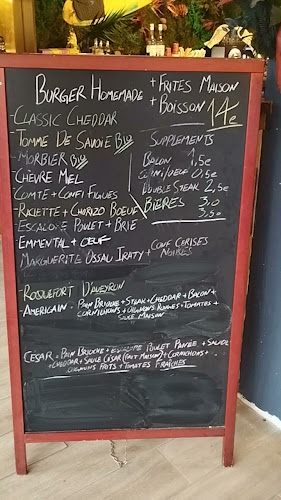 BURGER HOMEMADE + FRITES MAISON
+ BOISSON 14e
- CLASSIC CHEDDAR
- TOMME DE SAVOIE BIO
- MORBIER BIO
- CHÈVRE MIEL
- COMTÉ + CONFI FIGUES
- RACLETTE + CHORIZO BOEUF
- ESCALOPE POULET + BRIE
- EMMENTAL + OEUF
- MARGUERITE OSSAU IRATY + CONF CERISES NOIRES
SUPPLEMENTS
BACON 1,5e
CORNI/OEUF 0,5e
DOUBLE STEAK 2,5e
BIÈRES 3,0
3,50
- ROQUEFORT D'AVEYRON
- AMERICAIN = PAIN BRIOCHE + STEAK + CHEDDAR + BACON +
CORNICHONS + OIGNONS ROUGES + TOMATES +
SAUCE MAISON
CESAR = PAIN BRIOCHE + ESCALOPE POULET PANÉE + SALADE
+ CHEDDAR + SAUCE CÉSAR (FAIT MAISON) + CORNICHONS +
OIGNONS FRITS + TOMATES FRAÎCHES